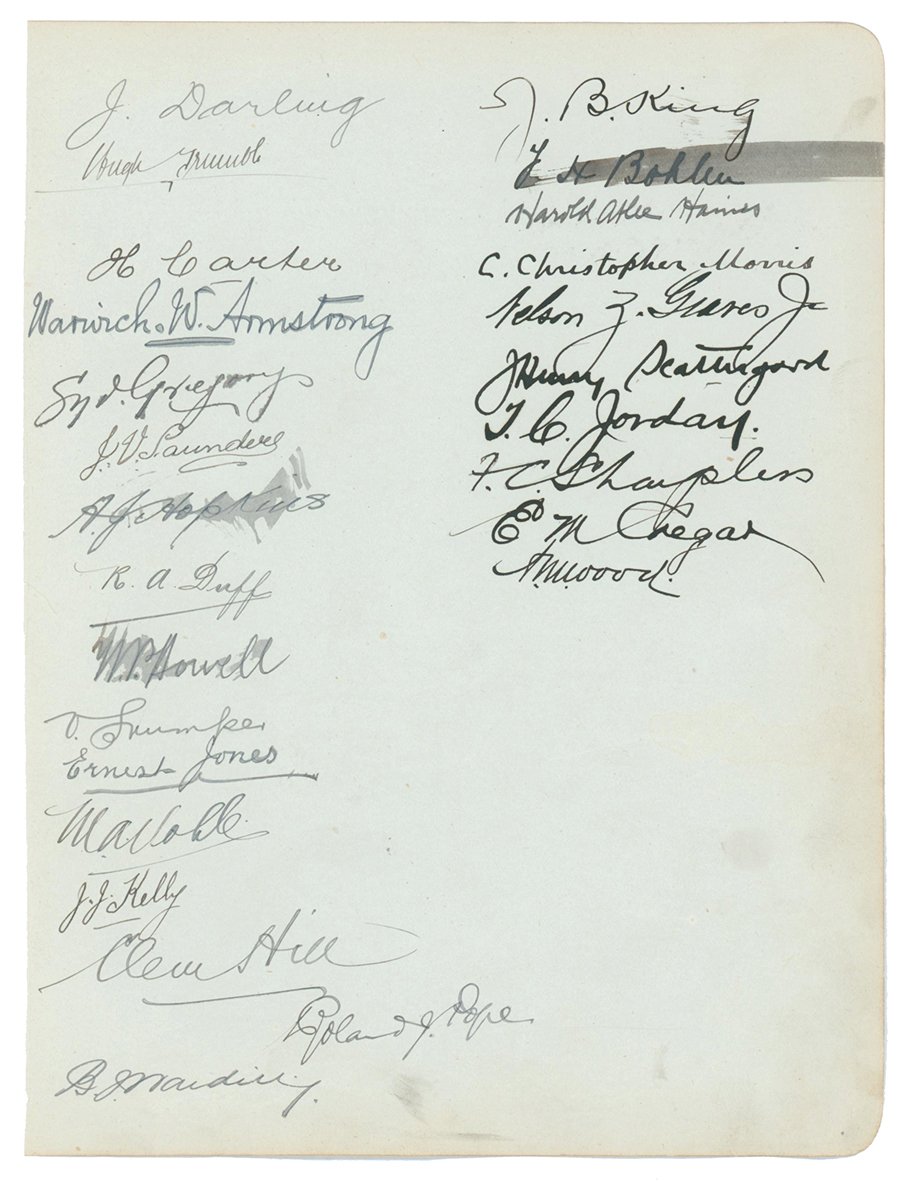 J. Darling
Hugh Trumble
H Carter
Warwick. W. Armstrong
Syd. Gregory
J. V. Saunders
A. J. Hopkins
R. A. Duff
W. P. Howell
V. Trumper
Ernest Jones
M. A. Noble
J. J. Kelly
Clem Hill
Roland J. Pope
B. J. Wardill.
J. B. King
F H Bohlen
Harold Atlee Haines
C. Christopher Morris
Nelson Z. Graves Jr
J Henry Scattergood
T. C. Jordan.
F. C. Sharpless
Ed M Cregar
A. M. Wood.